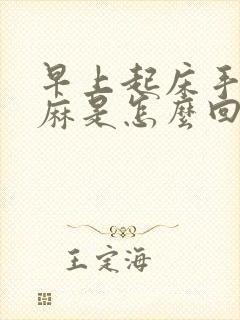 早上起床手
麻是怎麼回
王定海